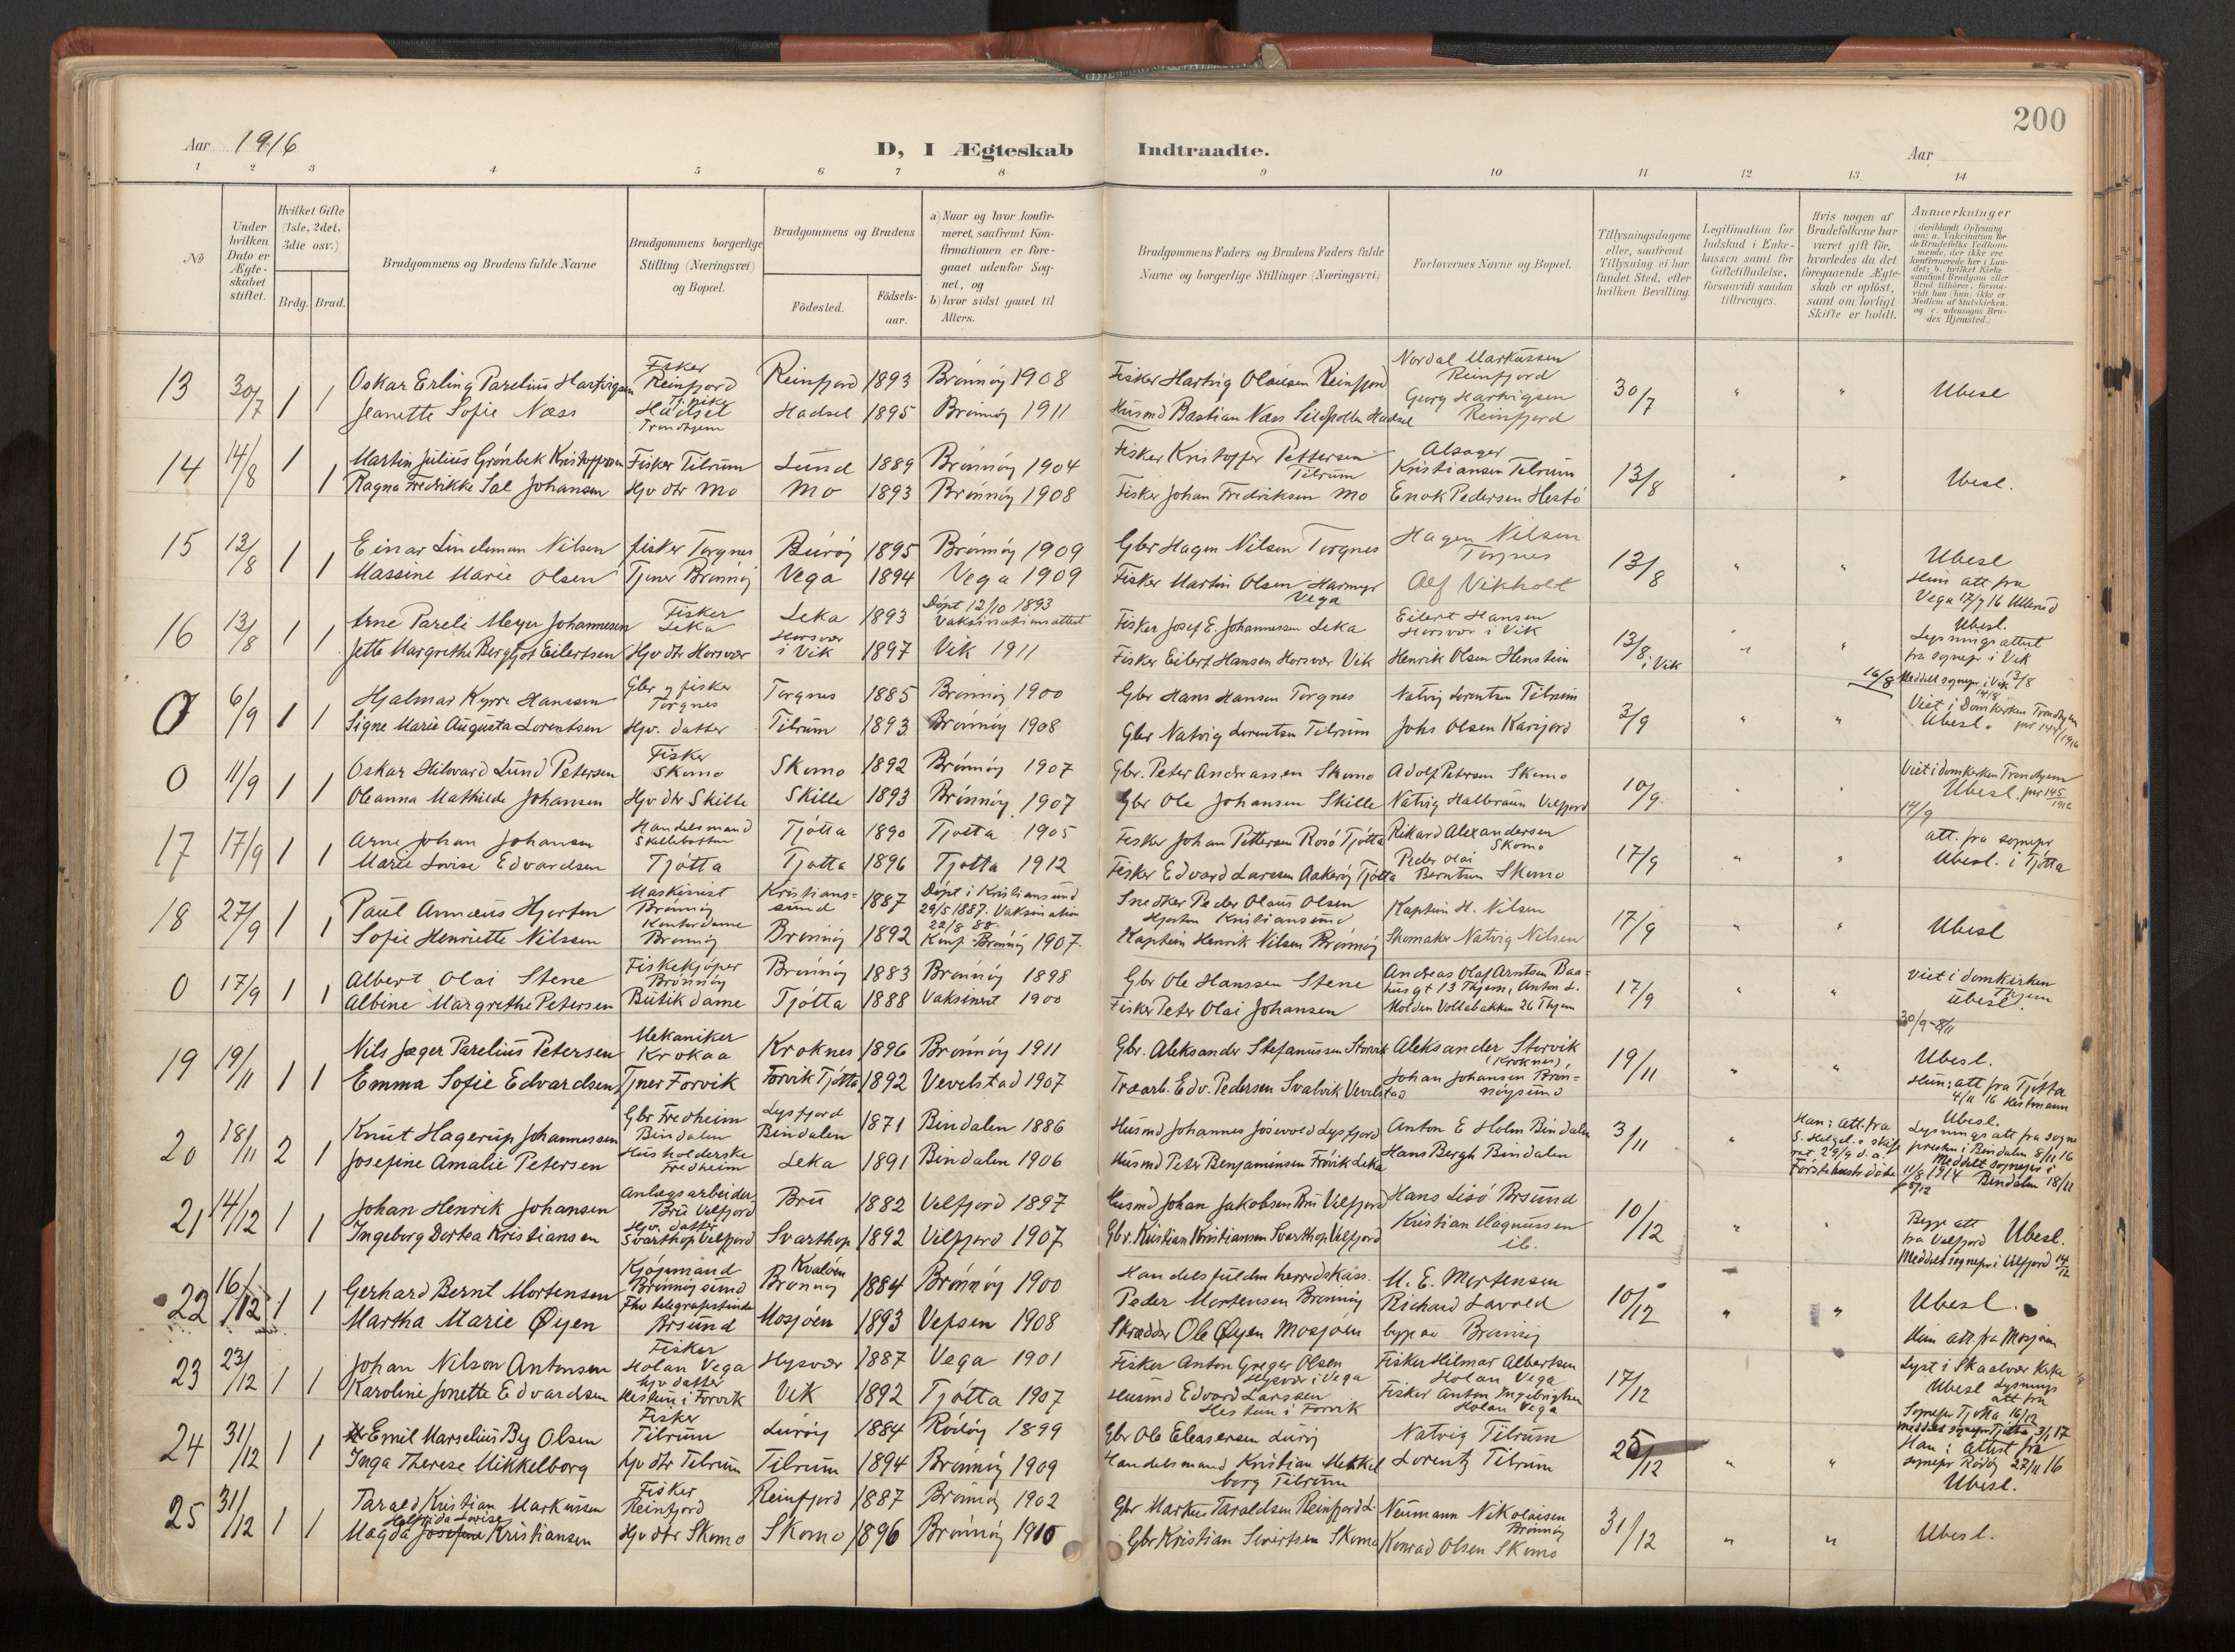 200
Aar 1916
D, I Ægteskab Indtraadte.
Aar
1 2 3 4 5 6 7 8 9 10 11 12 13 14
No
Under hvilken Dato er Ægteskabet stiftet.
Hvilket Gifte (1ste, 2det, 3die osv.)
Brdg. Brud.
Brudgommens og Brudens fulde Navne
Brudgommens borgerlige Stilling (Næringsvei) og Bopæl.
Brudgommens og Brudens
Födested.
Födselsaar.
a) Naar og hvor konfirmeret, saafremt Konfirmationen er foregaaet udenfor Sognet, og
b) hvor sidst gaaet til Alters.
Brudgommens Faders og Brudens Faders fulde Navne og borgerlige Stillinger (Næringsvei)
Forlovernes Navne og Bopæl.
Tillysningsdagene eller, saafremt Tillysning ei har fundet Sted, efter hvilken Bevilling.
Legitimation for Indskud i Enkekassen samt for Giftetilladelse, forsaavidt saadan tiltrænges.
Hvis nogen af Brudefolkene har været gift för, hvorledes da det foregaaende Ægteskab er oplöst, samt om lovligt Skifte er holdt.
Anmærkninger
13 30/7 1 1 Oskar Erling Parelius Hartvigsen Fisker Reinfjord Reinfjord 1893 Brønnøy 1908 Fisker Hartvig Olausen Reinfjord Nordal Markussen Reinfjord 30/7 " " Ubesl
Jeanette Sofie Næss Tj.pike Hadsel Trondhjem Hadsel 1895 Brønnøy 1911 Husmd Bastian Næss Hadsel Georg Hartvigsen Reinfjord
14 14/8 1 1 Martin Julius Grønbek Kristoffersen Fisker Tilrum Lund 1889 Brønnøy 1904 Fisker Kristoffer Pettersen Tilrum Kristiansen Tilrum 13/8 " " Ubesl.
Ragna Fredrikke Sal Johansen Hjv dtr Mo Mo 1893 Brønnøy 1908 Fisker Johan Fredriksen Mo Enok Pedersen Hestø
15 13/8 1 1 Einar Lindeman Nilsen fisker Torgnes Burøy 1895 Brønnøy 1909 Gbr Hagen Nilsen Torgnes Hagen Nilsen Torgnes 13/8 " " Ubesl
Massine Marie Olsen Tjener Brønnøy Vega 1894 Vega 1909 Fisker Martin Olsen Vega Alf Vikholt Hun att fra Vega 17/7 16
16 13/8 1 1 Arne Pareli Meyer Johannesen Fisker Leka Leka 1893 Døpt 12/10 1893 Vaksinationsattest Fisker Josef E. Johannessen Leka Eilert Hansen Horsvær i Vik 13/8 i Vik " " Ubesl. Lysningsattest fra sognepr i Vik
Jette Margrethe Bergljot Eilertsen Hjv dtr Horsvær Horsvær i Vik 1897 Vik 1911 Fisker Eilert Hansen Horsvær Vik Henrik Olsen Henstein
16/8 Meddelt sognepr. i Vik 13/8
0 6/9 1 1 Hjalmar Kyrre Hanssen Gbr og fisker Torgnes Torgnes 1885 Brønnøy 1900 Gbr Hans Hansen Torgnes Natvig Lorentsen Tilrum 3/9 " " Viet i Domkirken Trondhjem Ubesl.
Signe Marie Augusta Lorentsen Hjv. datter Tilrum 1893 Brønnøy 1908 Gbr Natvig Lorentsen Tilrum Johs Olsen Karijord
0 11/9 1 1 Oskar Hilvard Lund Petersen Fisker Skomo Skomo 1892 Brønnøy 1907 Gbr. Peter Andreassen Skomo Adolf Petersen Skomo 10/9 " " Viet i domkirken Trondhjem Ubesl.
Oleanna Mathilde Johansen Hjv dtr Skille Skille 1893 Brønnøy 1907 Gbr Ole Johansen Skille Natvig Halbraun Velfjord
17 17/9 1 1 Arne Johan Johansen Handelsmand Skillebotten Tjøtta 1890 Tjøtta 1905 Fisker Johan Pettersen Rosø Tjøtta Rikard Alexandersen Skomo 17/9 " " 14/9 att. fra sognepr Ubesl. i Tjøtta
Marie Lovise Edvardsen Tjøtta Tjøtta 1896 Tjøtta 1912 Fisker Edvard Larssen Aakerøy Tjøtta Peder Olai Berntsen Skomo
18 27/9 1 1 Paul Annæus Hjorten Maskinist Brønnøy Kristianssund 1887 Døpt i Kristiansund 29/5 1887. Vaksination 22/8 88. Snedker Peder Olaus Olsen Hjorten Kristiansund Kaptein H. Nilsen 17/9 " " Ubesl
Sofie Henriette Nilssen Kontordame Brønnøy Brønnøy 1892 Konf. Brønnøy 1907. Kaptein Henrik Nilsen Brønnøy Skomaker Natvig Nilsen
0 17/9 1 1 Albert Olai Stene Fiskekjøper Brønnøy Brønnøy 1883 Brønnøy 1898 Gbr Ole Hanssen Stene Andreas Olaf Arntsen Baahusgt 13 Thjem, Anton L. 17/9 " " Viet i domkirken Thjem Ubesl.
Albine Margrethe Petersen Butikdame Tjøtta 1888 Vaksinert 1900 Fisker Peter Olai Johansen Molden Vollabakken 26 Thjem
30/9 - 8/11
19 19/11 1 1 Nils Jæger Parelius Petersen Mekaniker Krokaa Kroknes 1896 Brønnøy 1911 Gbr. Aleksander Stefanussen Storvik Aleksander Storvik (Kroknes) 19/11 " " Ubesl.
Emma Sofie Edvardsen Tjner Forvik Forvik Tjøtta 1892 Vevelstad 1907 Træarb. Edv. Pedersen Svalvik Vevelstad Johan Johansen Brønnøysund Hun: att fra Tjøtta 4/11 16 Hestmann
20 18/11 2 1 Knut Hagerup Johannessen Gbr Fredheim Bindalen Lysfjord Bindalen 1871 Bindalen 1886 Husmd Johannes Josevold Lysfjord Anton E Holm Bindalen 3/11 " Han: att. fra S. Helgel.s skifteret 29/9 d.a. Ubesl. Lysningsatt fra sognepresten i Bindalen 8/11 16
Josefine Amalie Petersen Husholderske Fredheim Leka 1891 Bindalen 1906 Husmd Peter Benjaminsen Frøvik Leka Hans Bergh Bindalen Første hustr døde 11/8 1914 Meddelt sognepr i Bindalen 18/11
21 14/12 1 1 Johan Henrik Johansen Anlægsarbeider Bru Velfjord Bru 1882 Velfjord 1897 Husmd Johan Jakobsen Bru Velfjord Hans Lisø Brsund 10/12 " " Begge att fra Velfjord Ubesl.
Ingeborg Dortea Kristiansen Hjv. datter Svarthop Velfjord Svarthop 1892 Velfjord 1907 Gbr. Kristian Kristiansen Svarthop Velfjord Kristian Magnussen ib. Meddelt sognepr i Velfjord 14/12
22 16/12 1 1 Gerhard Bernt Mortensen Kjøpmand Brønnøysund Kvaløen Brønnøy 1884 Brønnøy 1900 Handelsfuldm herredskass. Peder Mortensen Brønnøy M. E. Mortensen 10/12 " " Ubesl.
Martha Marie Øyen Fhv telegrafistinde Brsund Mosjøen 1893 Vefsen 1908 Skrædder Ole Øyen Mosjøen Richard Lavold Brønnøy Hun att. fra Mosjøen
23 23/12 1 1 Johan Nilson Antonsen Fisker Holan Vega Hysvær 1887 Vega 1901 Fisker Anton Greger Olsen Hysvær i Vega Fisker Hilmar Albertsen Holan Vega 17/12 Lyst i Skaalvær Kirke Ubesl Lysnings att fra Sognepr Tjøtta 16/12
Karoline Jonette Edvardsen hjv datter Hestun i Forvik Vik 1892 Tjøtta 1907 Husmd Edvard Larssen Hestun i Forvik Fisker Anton Ingebrigtsen Holan Vega meddelt sognepr Tjøtta 3/1 17
24 31/12 1 1 Emil Marselius By Olsen Fisker Tilrum Lurøy 1884 Rødøy 1899 Gbr Ole Eleasersen Lurøy Natvig Tilrum 25/12 " " Han: attest fra sognepr Rødøy 27/11 16
Inga Therese Mikkelborg hjv dtr Tilrum Tilrum 1894 Brønnøy 1909 Handelsmand Kristian Mikkelborg Tilrum Lorentz Tilrum Ubesl.
25 31/12 1 1 Tarald Kristian Markussen Fisker Reinfjord Reinfjord 1887 Brønnøy 1902 Gbr Markus Taraldsen Reinfjord Neumann Nikolaisen Brønnøy 31/12 " " Ubesl.
Magda Josefine Kristiansen Hjv dtr Skomo Skomo 1896 Brønnøy 1910 Gbr Kristian Sivertsen Skomo Konrad Olsen Skomo